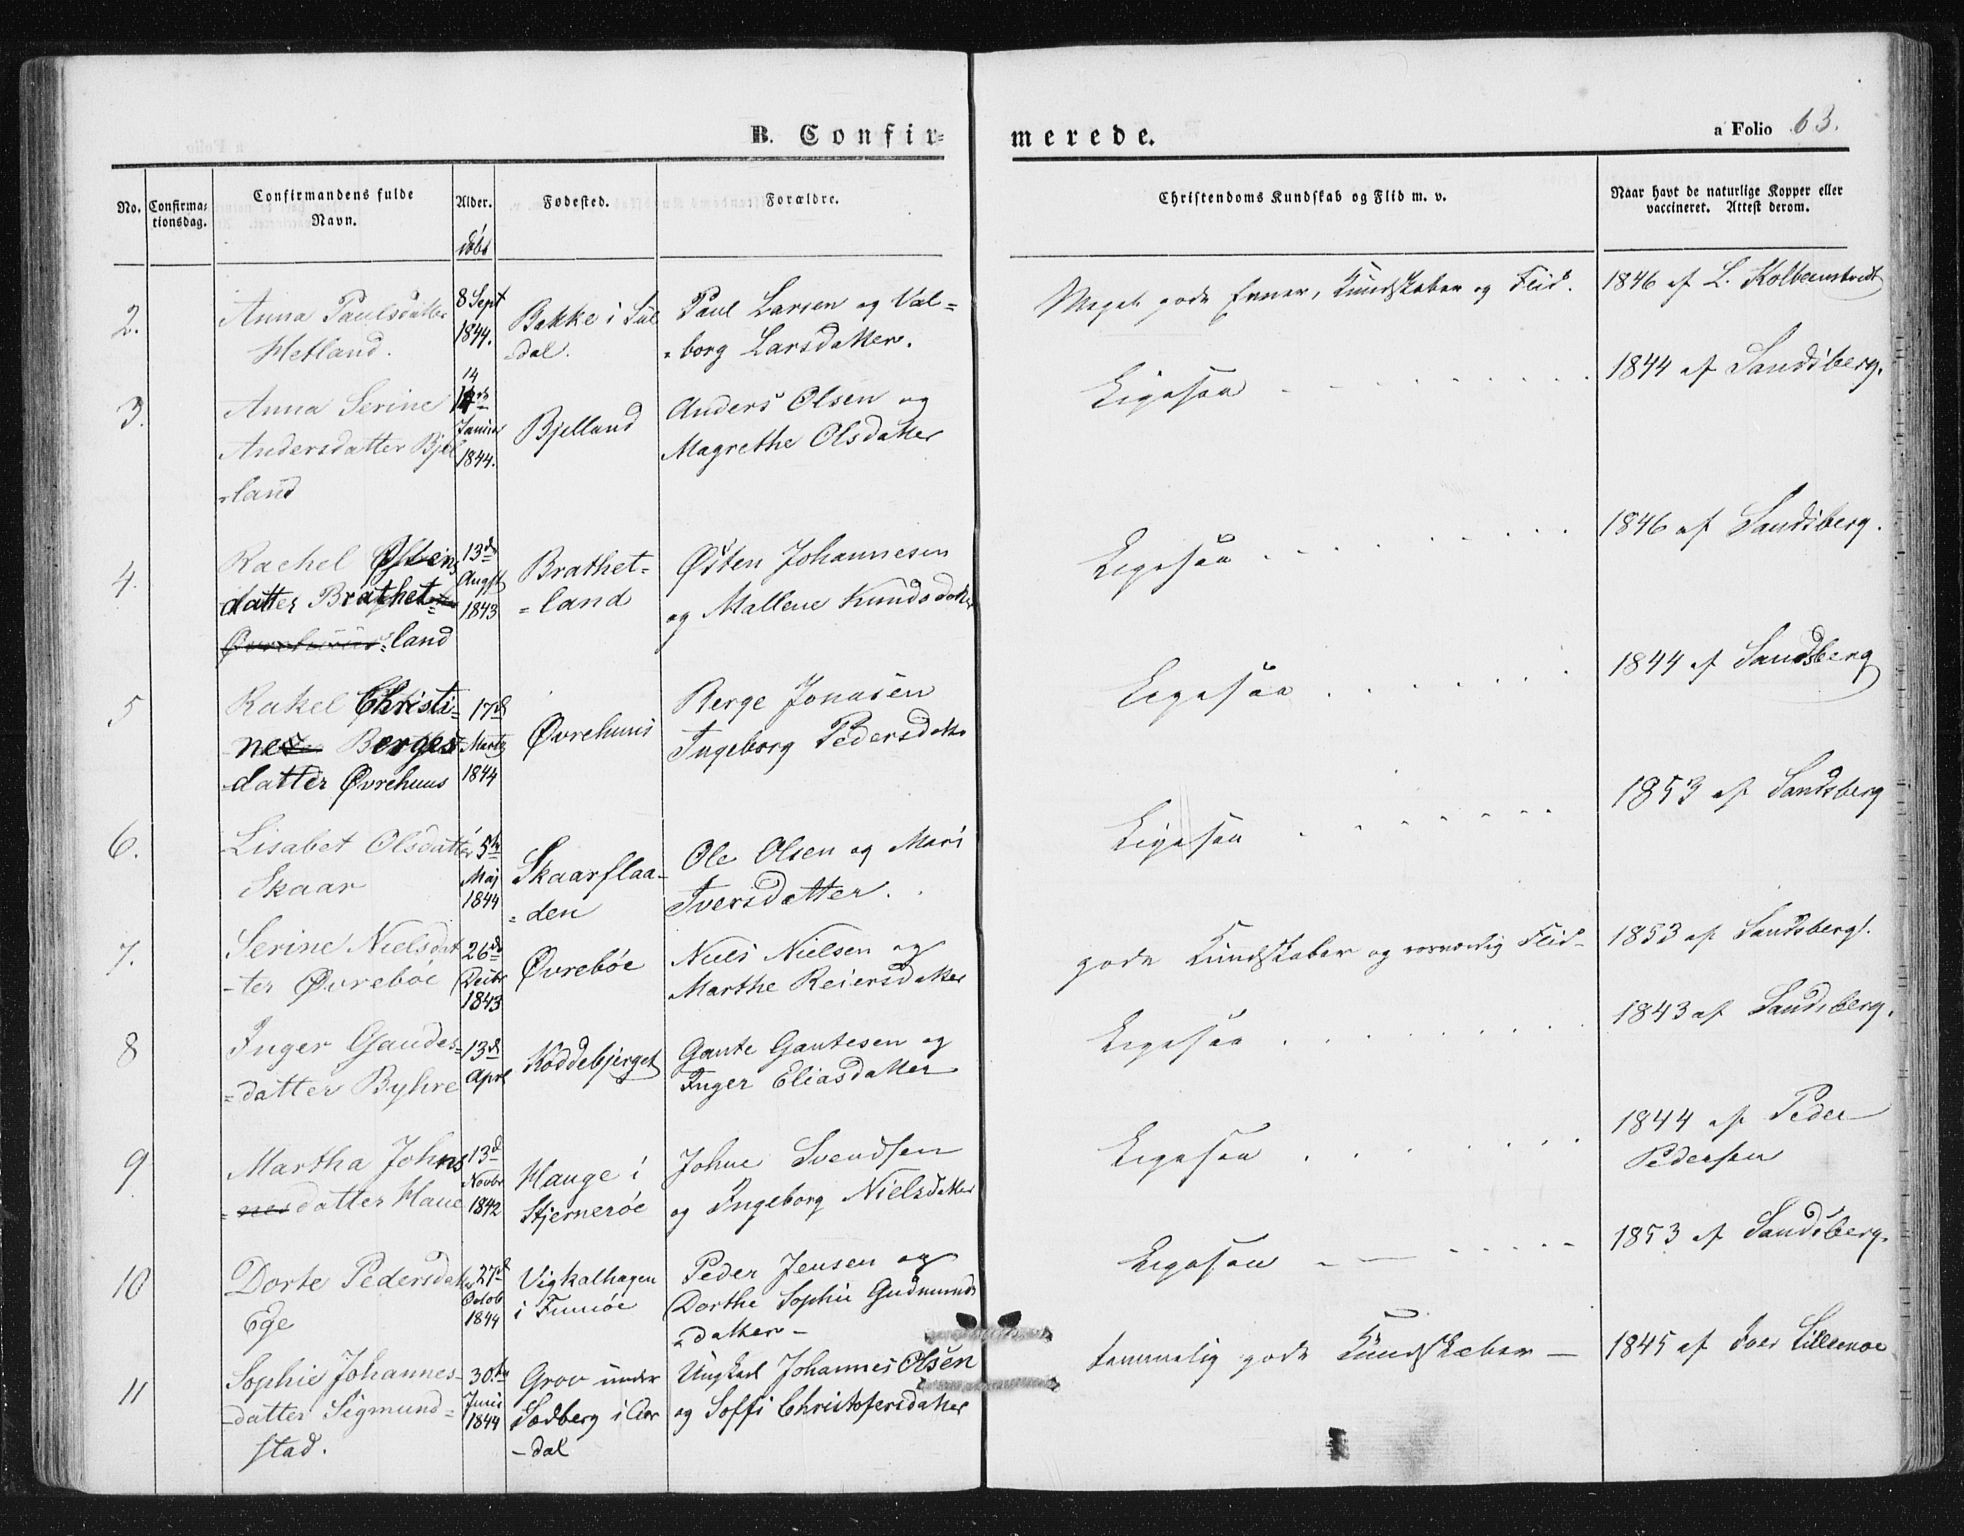 B. Confir=
merede.
a Folio 63.
No.
Confirma=
tionsdag.
Confirmandens fulde
Navn.
Alder.
døbt
Fødested.
Forældre.
Christendoms Kundskab og Flid m. v.
Naar havt de naturlige Kopper eller
vaccineret. Attest derom.
2.
Anna Paulsdatter
Hetland.
8 Sept
1844.
Bakke i Sul
-dal.
Paul Larsen og Val=
=borg Larsdatter.
Meget gode Evner, Kundskaber og Flid.
1846 af L. Kolbenstvedt
3.
Anna Serine
Andersdatter Bjel
=land
14
Januar
1844.
Bjelland
Anders Olsen og
Magrethe Olsdatter
Ligesaa
1844 af Sandsberg.
4.
Rachel Østens
datter Brathet=
Øvrehuus =land
13de
Augst
1843
Brathet=
=land
Østen Johannesen
og Mallene Knudsdatter
Ligesaa
1846 af Sandsberg.
5
Rakel Christi=
ne Berges
datter Øvrehuus
17de
Martz
1844
Øvrehuus
Berge Jonasen
Ingeborg Pedersdatter
Ligesaa
1844 af Sandsberg
6.
Lisabet Olsdatter
Skaar
5te
Maj
1844
Skaarflaa-
=den
Ole Olsen og Mari
Iversdatter.
Ligesaa
1853 af Sandsberg
7.
Serine Nielsdat
-ter Øvrebøe
26de
Decbr
1843
Øvrebøe
Niels Nielsen og
Marthe Reiersdatter
gode Kundskaber og Flid-
1853 af Sandsberg.
8
Inger Gaudes=
=datter Byhre
13de
Apri
Køddebjerget
Gaute Gautesen og
Inger Eliasdatter
Ligesaa
1843 af Sandsberg.
9
Martha Johns
=nesdatter Haue
13de
Novbr
1842
Hauge i
Stjernerøe
Johne Svendsen
og Ingeborg Nielsdatter
Ligesaa
1844 af Peder
Pedersen
10
Dorte Pedersdatter
Ege
27de
Octob
1844
Vigkalhagen
i Finnøe
Peder Jensen og
Dorthe Sophie Gudmunds
=datter-
Ligesaa
1853 af Sandsberg.
11
Sophie Johannes-
-datter Sigmund=
stad.
30te
Juni
1844
Grov under
Sædberg i Aar
-dal
Ungkarl Johannes Olsen
og Soffi Christofersdatter
temmelig gode Kundskaber -
1845 af Iver Lillemoe